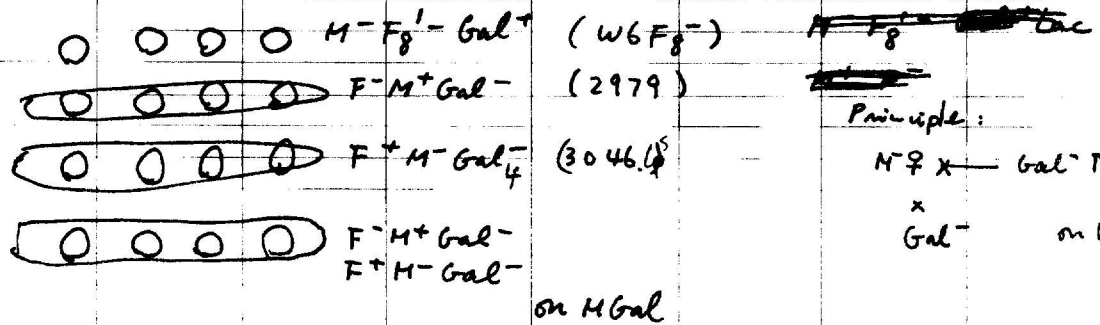 M⁻ F₈' - Gal⁺ (W6F₈⁻)
F⁻M⁺Gal⁻ (2979)
F⁺M⁻Gal₄⁻ (3046.
F⁻M⁺Gal⁻
F⁺M⁻Gal⁻
on MGal
Lac
Principle:
M⁻♀ x Gal⁻
x
Gal⁻ on